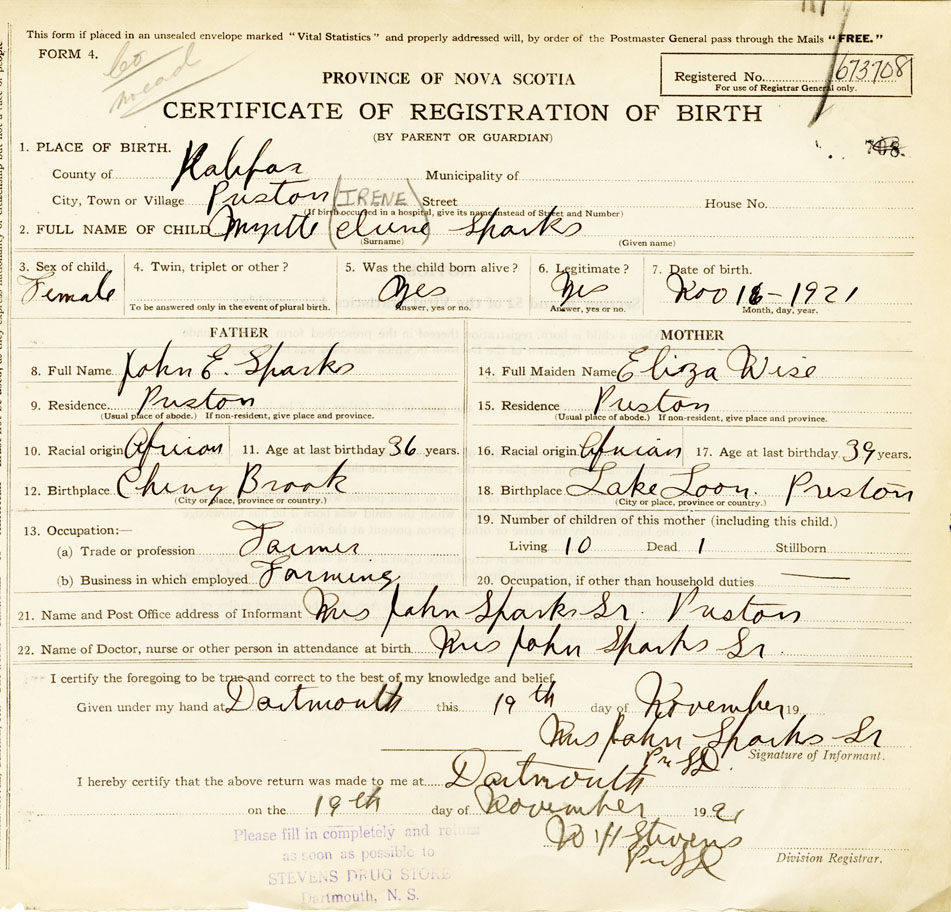 This form if placed in an unsealed envelope marked "Vital Statistics" and properly addressed will, by order of the Postmaster General pass through the Mails "FREE."
FORM 4.
PROVINCE OF NOVA SCOTIA
Registered No. 673708
For use of Registrar General only.
CERTIFICATE OF REGISTRATION OF BIRTH
(BY PARENT OR GUARDIAN)
708.
1. PLACE OF BIRTH.
County of Halifax Municipality of
City, Town or Village Preston Street House No.
(If birth occurred in a hospital, give its name instead of Street and Number)
(IRENE)
2. FULL NAME OF CHILD Myrtle Sparks
(Surname) (Given name)
3. Sex of child. 4. Twin, triplet or other? 5. Was the child born alive? 6. Legitimate? 7. Date of birth.
Female Yes Yes Nov 16-1921
To be answered only in the event of plural birth. Answer, yes or no. Answer, yes or no. Month, day, year.
FATHER MOTHER
8. Full Name John E. Sparks 14. Full Maiden Name Eliza Wise
9. Residence Preston 15. Residence Preston
(Usual place of abode.) If non-resident, give place and province. (Usual place of abode.) If non-resident, give place and province.
10. Racial origin African 11. Age at last birthday 36 years. 16. Racial origin African 17. Age at last birthday 39 years.
12. Birthplace Cherry Brook 18. Birthplace Lake Loon. Preston
(City or place, province or country.) (City or place, province or country.)
13. Occupation:— 19. Number of children of this mother (including this child.)
(a) Trade or profession Farmer Living 10 Dead 1 Stillborn
(b) Business in which employed Farming 20. Occupation, if other than household duties —
21. Name and Post Office address of Informant Mrs John Sparks Sr. Preston
22. Name of Doctor, nurse or other person in attendance at birth Mrs John Sparks Sr
I certify the foregoing to be true and correct to the best of my knowledge and belief,
Given under my hand at Dartmouth this 19th day of November 19
Mrs John Sparks Sr
Signature of Informant.
I hereby certify that the above return was made to me at Dartmouth
on the 19th day of November 19
Stevens
Division Registrar.
Please fill in completely and return
as soon as possible to
STEVENS DRUG STORE
Dartmouth, N. S.